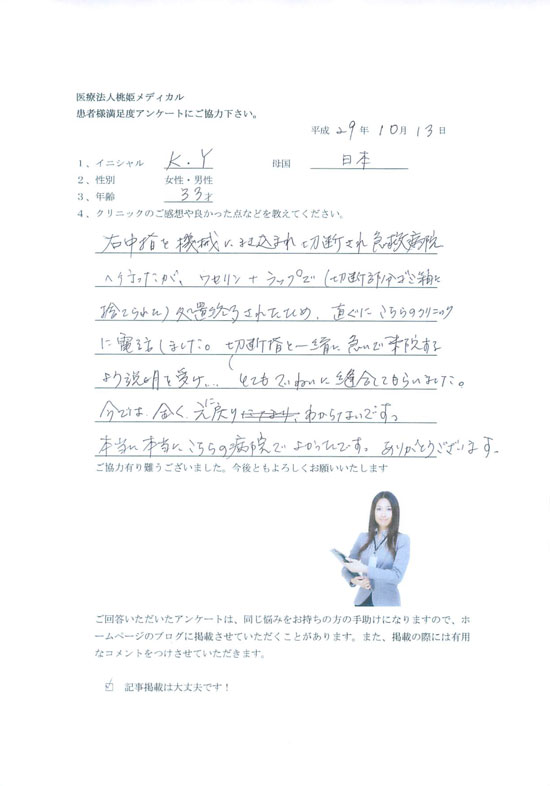 医療法人桃姫メディカル
患者様満足度アンケートにご協力下さい。
平成 29 年 10 月 13 日
1、イニシャル K.Y 母国 日本
2、性別 女性・男性
3、年齢 33才
4、クリニックのご感想や良かった点などを教えてください。
右中指を機械にまき込まれ切断され救急病院
へ行ったが、ワセリン+ラップで(切断部分はゴミ箱に
捨てられた)処置を終了されたため、直ぐにこちらのクリニック
に電話しました。切断指と一緒に急いで来院する
よう説明を受け... とてもていねいに縫合してもらいました。
今では全く、元に戻り わからないです。
本当に本当にこちらの病院でよかったです。ありがとうございます。
ご協力有り難うございました。今後ともよろしくお願いいたします
ご回答いただいたアンケートは、同じ悩みをお持ちの方の手助けになりますので、ホ
ームページのブログに掲載させていただくことがあります。また、掲載の際には有用
なコメントをつけさせていただきます。
☑ 記事掲載は大丈夫です！